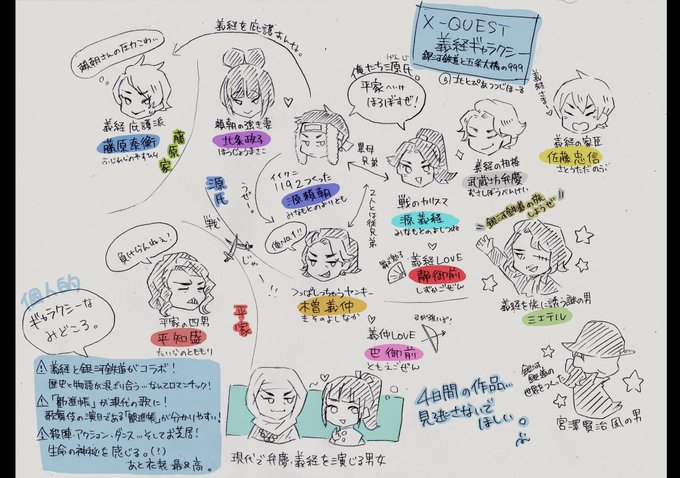 X-QUEST
義経ギャラクシー
銀河鉄道と五条大橋の999
義経を庇護すんな。
頼朝さんの圧力こわ…
義経庇護派
藤原泰衡
ふじわらのやすひら
藤原家
頼朝の強き妻
北条政子
ほうじょうまさこ
俺たち源氏。
げんじ
平家へいけ
ほろぼすぜ!
イイクニ
1192つくった
源頼朝
みなもとのよりとも
異母
兄弟
戦のカリスマ
源義経
みなもとのよしつね
義経の相棒
武蔵坊弁慶
むさしぼうべんけい
義経さま
義経の家臣
佐藤忠信
さとうただのぶ
源氏
戦
じゃ!!
平家
うぜー。
2人とは従兄弟
俺もね!!
つっぱしっちゃうヤンキー
木曽義仲
きそのよしなか
義経LOVE
静御前
しずかごぜん
義仲LOVE
巴御前
ともえごぜん
銀河鉄道の旅
しようぜ!
義経を旅に誘う謎の男
ミエテル
負けらんねえ!
平家の四男
平知盛
たいらのとももり
銀河
鉄道の
世界をつくった
宮澤賢治風の男
個人的
ギャラクシーな
みどころ。
義経と銀河鉄道がコラボ!
歴史と物語が混ざり合う…なんてロマンチック!
「勧進帳」が現代の歌に!
歌舞伎の演目である「勧進帳」が分かりやすい!
殺陣・アクション・ダンス…そしてお芝居!
生命の神秘を感じる。(!)
あと衣装最高。
現代で弁慶・義経を演じる男女
4日間の作品…
見逃さないで
ほしい。